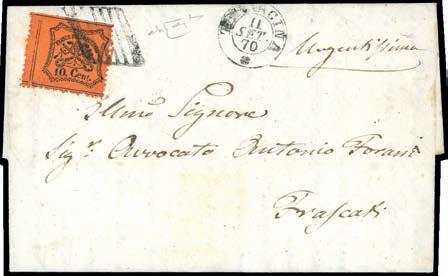 10 Cent.
TERRACINA
11
SET
70
Urgentissima
Illmo Signore
Sig.r Avvocato Antonio Forani
Frascati